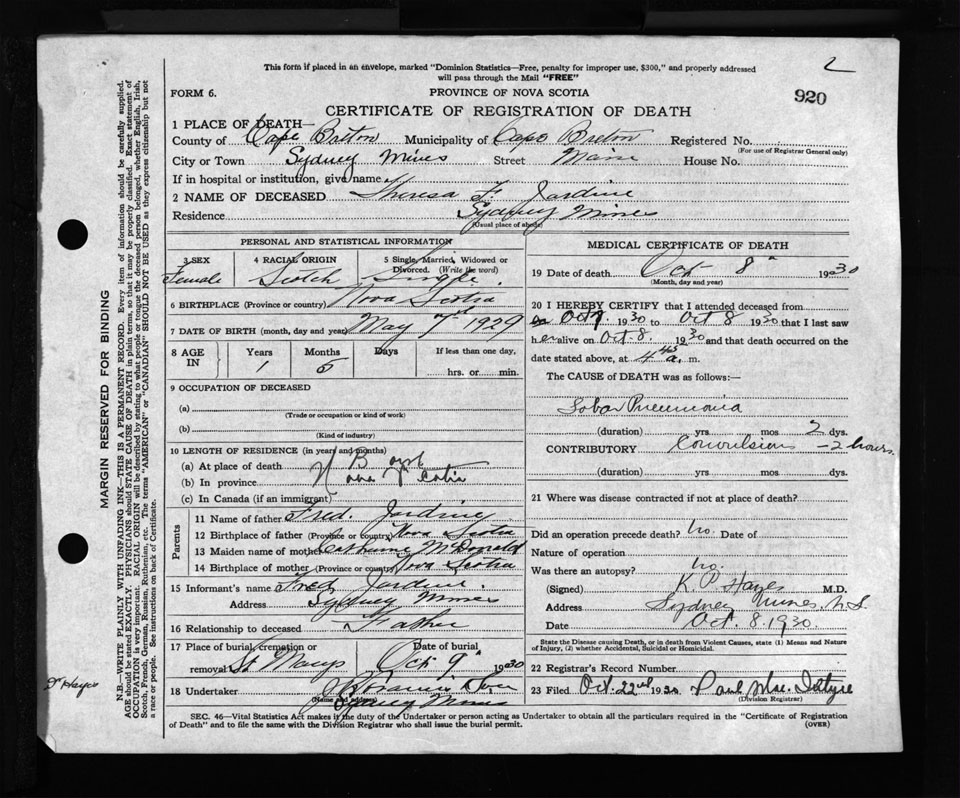 This form if placed in an envelope, marked "Dominion Statistics—Free, penalty for improper use, $300," and properly addressed
will pass through the Mail "FREE"
2
FORM 6.
PROVINCE OF NOVA SCOTIA
920
CERTIFICATE OF REGISTRATION OF DEATH
1 PLACE OF DEATH—
County of Cape Breton Municipality of Cape Breton Registered No.
(For use of Registrar General only)
City or Town Sydney Mines Street Main House No.
If in hospital or institution, give name
2 NAME OF DECEASED Theresa F. Jardine
Residence Sydney Mines
(Usual place of abode)
PERSONAL AND STATISTICAL INFORMATION
3 SEX
Female
4 RACIAL ORIGIN
Scotch
5 Single, Married, Widowed or
Divorced. (Write the word)
Single.
6 BIRTHPLACE (Province or country) Nova Scotia
7 DATE OF BIRTH (month, day and year) May 7 1929
8 AGE IN
Years
1
Months
5
Days
If less than one day,
hrs. or min.
9 OCCUPATION OF DECEASED
(a)
(Trade or occupation or kind of work)
(b)
(Kind of industry)
10 LENGTH OF RESIDENCE (in years and months)
(a) At place of death
(b) In province Nova Scotia
(c) In Canada (if an immigrant)
Parents
11 Name of father Fred. Jardine
12 Birthplace of father (Province or country) Nova Scotia
13 Maiden name of mother Catherine McDonald
14 Birthplace of mother (Province or country) Nova Scotia
15 Informant's name Fred Jardine.
Address Sydney Mines
16 Relationship to deceased Father
17 Place of burial, cremation or
removal St Marys
Date of burial
Oct 9 1930
18 Undertaker
(Name and address) Sydney Mines
MEDICAL CERTIFICATE OF DEATH
19 Date of death Oct 8 1930
(Month, day and year)
20 I HEREBY CERTIFY that I attended deceased from
Oct 1930 to Oct 8 1930 that I last saw
her alive on Oct. 8. 1930 and that death occurred on the
date stated above, at 4 45 a. m.
The CAUSE of DEATH was as follows:
Lobar Pneumonia
(duration) yrs mos 2 dys.
CONTRIBUTORY Convulsions - 2 hours.
(duration) yrs mos dys.
21 Where was disease contracted if not at place of death?
Did an operation precede death? No. Date of
Nature of operation
Was there an autopsy? No.
(Signed) K P Hayes M.D.
Address Sydney Mines, N.S.
Date Oct. 8. 1930.
State the Disease causing Death, or in death from Violent Causes, state (1) Means and Nature
of Injury, (2) whether Accidental, Suicidal or Homicidal.
22 Registrar's Record Number
23 Filed Oct. 22nd 1930 Paul
(Division Registrar)
SEC. 46—Vital Statistics Act makes it the duty of the Undertaker or person acting as Undertaker to obtain all the particulars required in the "Certificate of Registration
of Death" and to file the same with the Division Registrar who shall issue the burial permit.
(OVER)
MARGIN RESERVED FOR BINDING
N.B.—WRITE PLAINLY WITH UNFADING INK—THIS IS A PERMANENT RECORD. Every item of information should be carefully supplied.
AGE should be stated EXACTLY. PHYSICIANS should STATE CAUSE OF DEATH in plain terms, so that it may be properly classified. Exact statement of
OCCUPATION is very important. RACIAL ORIGIN will be described by stating to what people or tongue the deceased person belonged, whether English, Irish,
Scotch, French, German, Russian, Ruthenian, etc. The terms "AMERICAN" or "CANADIAN" SHOULD NOT BE USED as they express citizenship but not
a race or people. See instructions on back of Certificate.
Dr Hayes